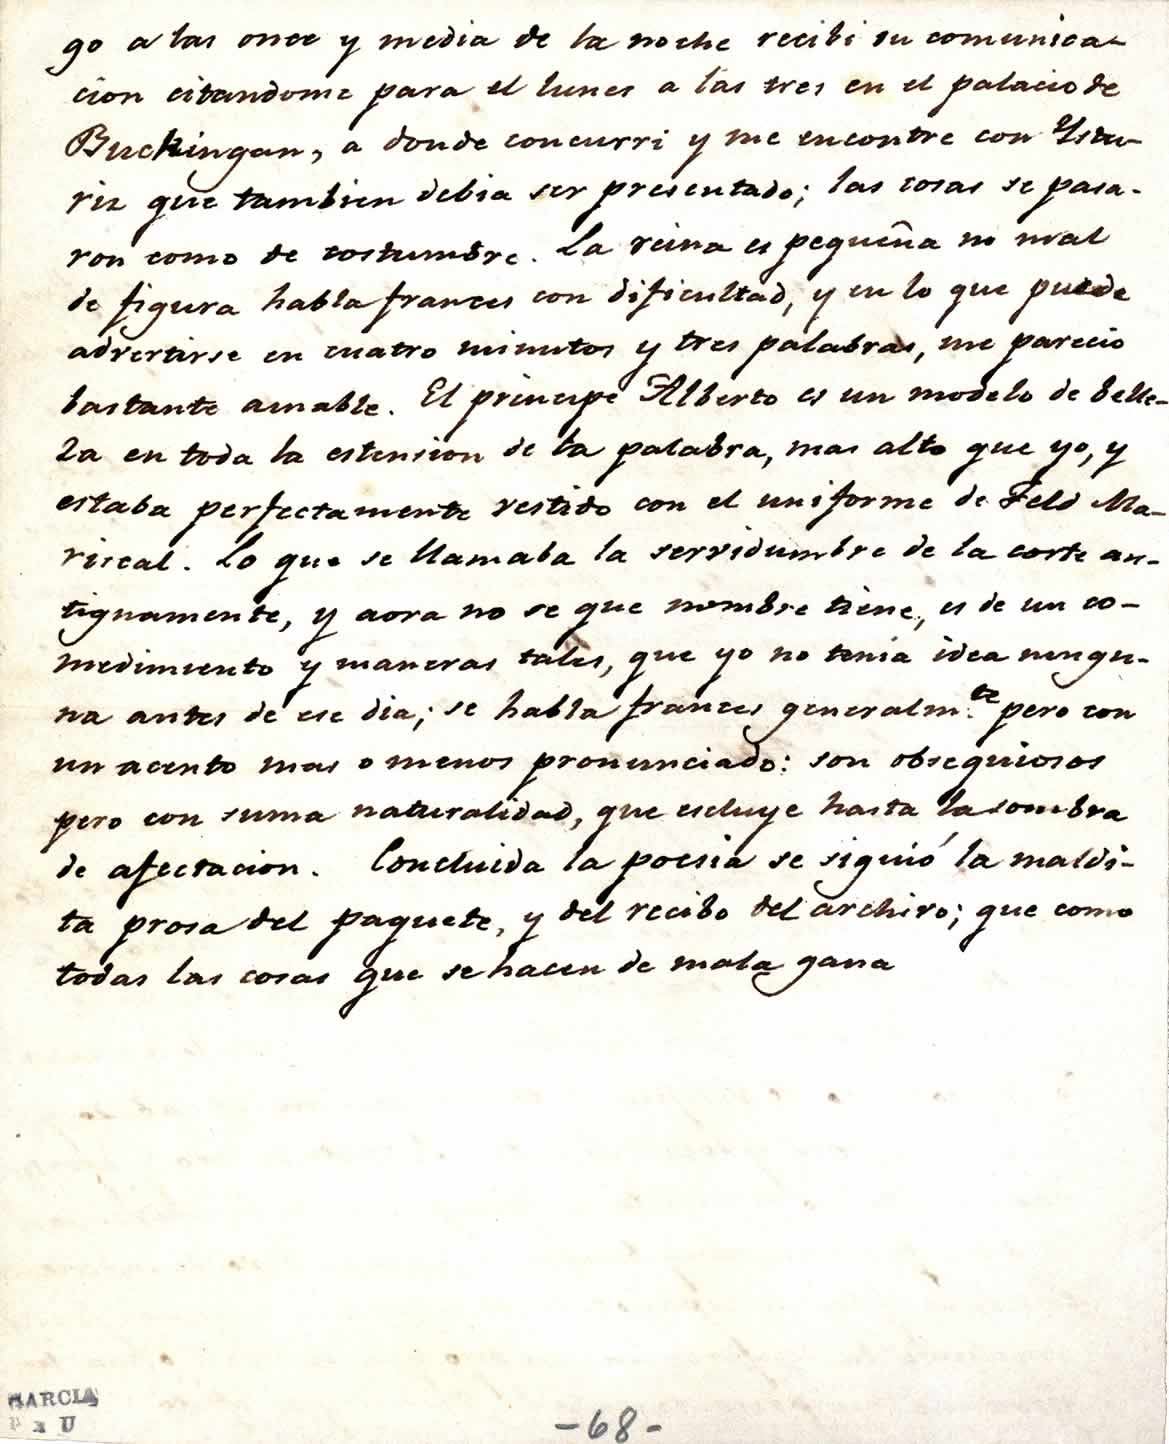 go a las once y media de la noche recibi su comunica-
cion citandome para el lunes a las tres en el palacio de
Buckingan, a donde concurri y me encontre con Ystu-
riz que tambien debia ser presentado; las cosas se pasa-
ron como de costumbre. La reina es pequeña no mal
de figura habla frances con dificultad, y en lo que puede
advertirse en cuatro minutos y tres palabras, me parecio
bastante amable. El principe Alberto es un modelo de belle-
za en toda la estension de la palabra, mas alto que yo, y
estaba perfectamente vestido con el uniforme de Feld Ma-
riscal. Lo que se llamaba la servidumbre de la corte an-
tiguamente, y aora no se que nombre tiene, es de un co-
medimiento y maneras tales, que yo no tenia idea ningu-
na antes de ese dia; se habla frances generalm.te pero con
un acento mas o menos pronunciado: son obsequiosos
pero con suma naturalidad, que escluye hasta la sombra
de afectacion. Concluida la poesia se siguió la maldi-
ta prosa del paquete, y del recibo del archivo; que como
todas las cosas que se hacen de mala gana
GARCIA
U
-68-